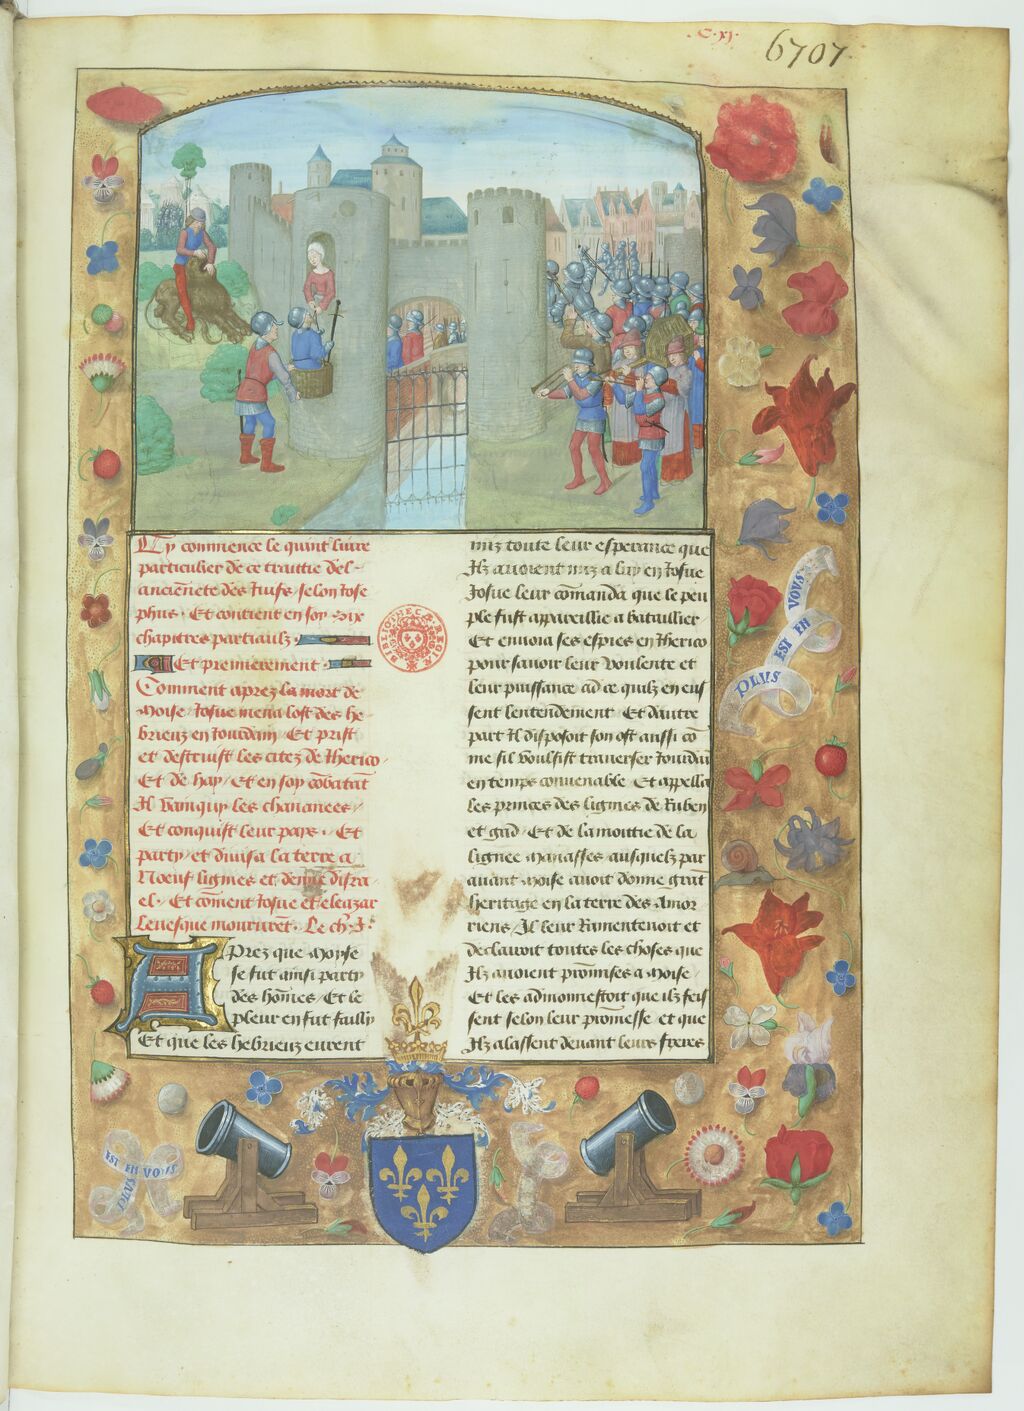 C · xj ·
6707
Cy commence le quint liure
particulier de ce traittie del-
anciēnete des Juifs / selon Jose
phus · Et contient en soy six
chapitres partiaulz ·
Et premierement ·
Comment aprez la mort de
Moise / Josue mena lost des he-
brieuz en Jourdain / Et prist
et destruist les citez de Iherico ·
Et de hay / et en soy cōbatāt
Il vainquy les chananees /
Et conquist leur pays · Et
party et diuisa la terre a
Noeuf lignies et demie disra-
el · Et cōment Josue et eleazar
Leuesque moururēt · Le ch̄ · J ·
Aprez que Moyse
se fut ainsi party
des hōmes / Et le
pleur en fut failly
Et que les hebrieuz eurent
miz toute leur esperance que
Ilz auoient miz a luy en Josue
Josue leur cōmanda que le peu
ple fust appareillie a bataillier
Et enuoia ses espies en Iherico
pour sauoir leur voulente et
leur puissance ad ce quilz en eus
sent lentendement Et dautre
part Il disposoit son ost aussi cō
me sil voulsist trauerser Jourdaī
en temps conuenable Et appella
les princes des lignies de Ruben
et gad / Et de la moittie de la
lignee Manasses ausquelz par
auant Moise auoit donne grāt
heritage en la terre des Amor
riens / Il leur Ramenteuoit et
declairoit toutes les choses que
Ilz auoient promises a Moise ·
Et les admonnestoit que ilz feis
sent selon leur promesse et que
Ilz alassent deuant leurs freres
BIBLIOTHECÆ REGIÆ
PLUS EST EN VOUS
PLUS EST EN VOUS